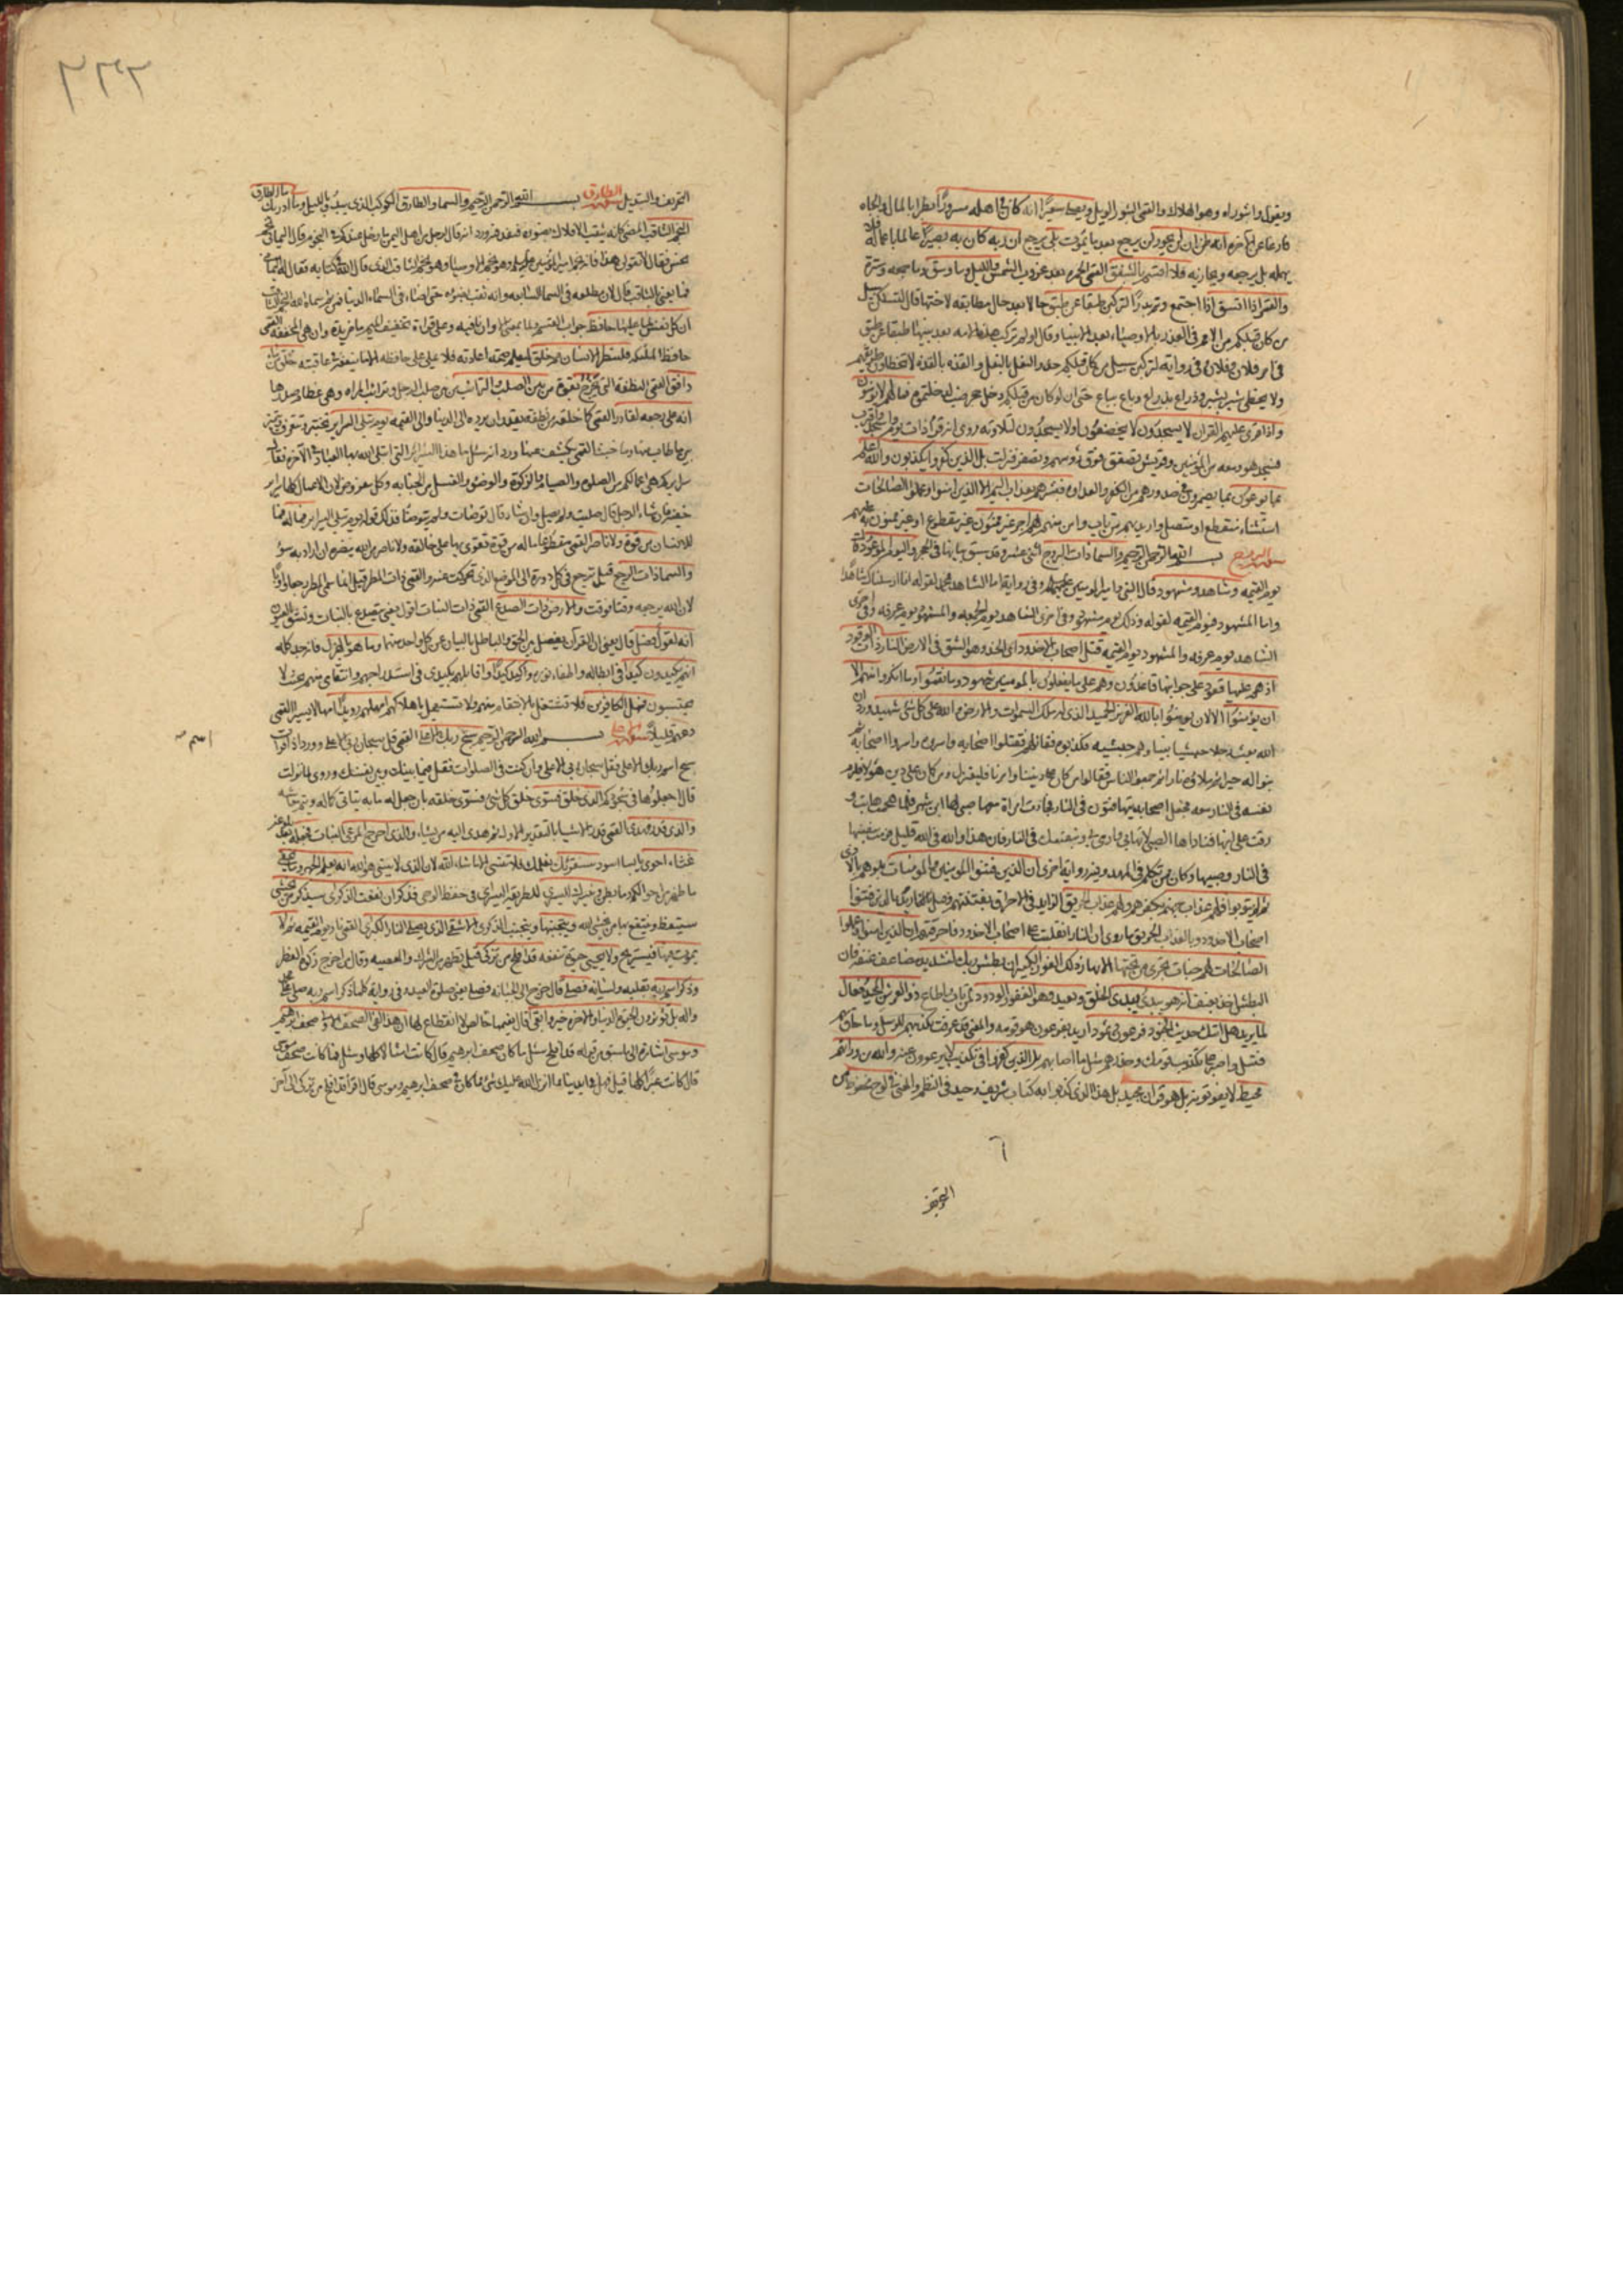 ويقول واثبوراه وهو الهلاك والقمى الثبور الويل ويصلى سعيرا انه كان في اهله مسرورا بطرا بالمال والجاه
فارغا عن الاخره انه ظن ان لن يحور لن يرجع بعد ما يموت بلى يرجع ان ربه كان به بصيرا عالما باعماله فلا
يهمله بل يرجعه ويجازيه فلا اقسم بالشفق القمى الحمره بعد غروب الشمس والليل وما وسق وما جمعه وستره
والقمر اذا اتسق اذا اجتمع وتم بدرا لتركبن طبقا عن طبق حالا بعد حال مطابقه لاختها قال لتسلكن سبيل
من كان قبلكم من الامم في الغدر بالاوصياء بعد الانبياء وقال اولم تركب هذه الامه بعد نبيها طبقا عن طبق
في امر فلان وفلان وفي روايه لتركبن سبيل من كان قبلكم حذو النعل بالنعل والقذه بالقذه لا تخطاون طريقهم
ولا يخطى شبر بشبر وذراع بذراع وباع بباع حتى ان لو كان من قبلكم دخل جحر ضب لدخلتموه فما لهم لا يؤمنون
واذا قرئ عليهم القران لا يسجدون لا يخضعون او لا يسجدون لتلاوته روى انه قرا ذات يوم واسجد واقترب
فسجد هو ومعه من المؤمنين وقريش تصفق فوق رؤسهم وتصفر فنزلت بل الذين كفروا يكذبون والله اعلم
بما يوعون بما يضمرون في صدورهم من الكفر والعداوه فبشرهم بعذاب اليم الا الذين امنوا وعملوا الصالحات
استثناء منقطع او متصل واريد بهم من تاب وامن منهم لهم اجر غير ممنون غير مقطوع او غير ممنون به عليهم
سورة البروج بسم الله الرحمن الرحيم والسماء ذات البروج اثنى عشر وقد سبق بيانها في الحجر واليوم الموعود
يوم القيمه وشاهد ومشهود قال النبي وامير المؤمنين وفي روايه اما الشاهد محمد لقوله انا ارسلناك شاهدا
واما المشهود فيوم القيمه لقوله وذلك يوم مشهود وفي اخرى الشاهد يوم الجمعه والمشهود يوم عرفه وفي اخرى
الشاهد يوم عرفه والمشهود يوم القيمه قتل اصحاب الاخدود اى الخد وهو الشق في الارض النار ذات الوقود
اذ هم عليها قعود على جوانبها قاعدون وهم على ما يفعلون بالمؤمنين شهود وما نقموا وما انكروا منهم الا
ان يؤمنوا الا لان يؤمنوا بالله العزيز الحميد الذى له ملك السموات والارض والله على كل شئ شهيد ورد ان
الله بعث رجلا حبشيا نبيا وهم حبشيه فكذبوه فقاتلهم فقتلوا اصحابه واسروه واسروا اصحابه ثم
بنوا له حيرا ثم ملاؤه نارا ثم جمعوا الناس فقالوا من كان على ديننا وامرنا فليعتزل ومن كان على دين هؤلاء فليرم
نفسه في النار معه فجعل اصحابه يتهافتون في النار فجاءت امراة معها صبى لها ابن شهر فلما هجمت هابت و
رقت على ابنها فناداها الصبى لا تهابى وارمى بى وبنفسك في النار فان هذا والله في الله قليل فرمت بنفسها
في النار وصبيها وكان ممن تكلم في المهد وفي روايه اخرى ان الذين فتنوا المؤمنين والمؤمنات بلوهم بالاذى
ثم لم يتوبوا فلهم عذاب جهنم بكفرهم ولهم عذاب الحريق الزايد في الاحراق بفتنتهم وقيل المراد بالذين فتنوا
اصحاب الاخدود وبالعذاب الحريق ما روى ان النار انقلبت على اصحاب الاخدود فاحرقتهم ان الذين امنوا وعملوا
الصالحات لهم جنات تجرى من تحتها الانهار ذلك الفوز الكبير ان بطش ربك لشديد مضاعف عنفه فان
البطش اخذ بعنف انه هو يبدئ ويعيد يبدئ الخلق ويعيده وهو الغفور الودود لمن تاب واطاع ذو العرش المجيد فعال
لما يريد هل اتيك حديث الجنود فرعون وثمود اريد بفرعون هو وقومه والمعنى قد عرفت تكذيبهم للرسل وما حاق بهم
فتسل واصبر على تكذيب قومك وحذرهم مثل ما اصابهم بل الذين كفروا في تكذيب لا يرعوون عنه والله من ورائهم
محيط لا يفوتونه بل هو قران مجيد بل هذا الذى كذبوا به كتاب شريف وحيد في النظم والمعنى في لوح محفوظ من
التحريف
٢٣٢
التحريف والتبديل سورة الطارق بسم الله الرحمن الرحيم والسماء والطارق الكوكب الذى يبدو بالليل وما ادريك ما الطارق
النجم الثاقب المضئ كانه يثقب الافلاك بضوئه فينفذ فيه ورد انه قال لرجل من اهل اليمن ما زحل عندكم في النجوم قال اليمانى نجم
نحس فقال لا تقولن هذا فانه نجم امير المؤمنين وهو نجم الاوصياء وهو النجم الثاقب الذى قال الله في كتابه فقال له اليمانى
فما يعنى بالثاقب قال لان مطلعه في السماء السابعه وانه ثقب بضوئه حتى اضاء في السماء الدنيا فمن ثم سماه الله النجم الثاقب
ان كل نفس لما عليها حافظ جواب القسم ولما بمعنى الا وان نافيه وعلى قراءة تخفيف الميم ما مزيدة وان هى المخففه القمى
حافظ الملئكه فلينظر الانسان مم خلق ليعلم صحه اعادته فلا يملى على حافظه الا ما ينفعه في عاقبته خلق من ماء
دافق القمى النطفه التى تخرج بقوة من بين الصلب والترائب من بين صلب الرجل وترائب المراه وهى عظام صدرها
انه على رجعه لقادر القمى كما خلقه من نطفه يقدر ان يرده الى الدنيا والى القيمه يوم تبلى السرائر تختبر وتتعرف وتميز
بين ما طاب منها وما خبث القمى يكشف عنها ورد انه سئل ما هذه السرائر التى ابتلى الله بها العباد في الآخره فقال
سرائركم هى اعمالكم من الصلوه والصيام والزكوة والوضوء والغسل من الجنابه وكل مفروض لان الاعمال كلها سرائر
خفيه فان شاء الرجل قال صليت ولم يصل وان شاء قال توضات ولم يتوضأ فذلك قوله يوم تبلى السرائر فما له فما
للانسان من قوة ولا ناصر القمى ما له من قوة يقوى بها على خالقه ولا ناصر من الله ينصره ان اراد به سوء
والسماء ذات الرجع قيل ترجع في كل دورة الى الموضع الذى تحركت عنه والقمى ذات المطر قيل انما سمى المطر رجعا واوبا
لان الله يرجعه وقتا فوقتا والارض ذات الصدع القمى ذات النبات اقول يعنى تتصدع بالنبات وتنشق بالعيون
انه لقول فصل قال يعنى ان القرآن يفصل بين الحق والباطل بالبيان عن كل واحد منهما وما هو بالهزل فانه جد كله
انهم يكيدون كيدا في ابطاله واطفاء نوره واكيد كيدا واقابلهم بكيدى في استدراجهم وانتقامى منهم حيث لا
يحتسبون فمهل الكافرين فلا تشتغل بالانتقام منهم ولا تستعجل باهلاكهم امهلهم رويدا امهالا يسيرا القمى
دعهم قليلا سورة الاعلى بسم الله الرحمن الرحيم سبح ربك الاعلى القمى قل سبحان ربى الاعلى وورد اذا قرات
اسم صح
سبح اسم ربك الاعلى فقل سبحان ربى الاعلى وان كنت في الصلوات فقل فيما بينك وبين نفسك وروى لما نزلت
قال اجعلوها في سجودكم الذى خلق فسوى خلق كل شئ فسوى خلقه بان جعل له ما به يتأتى كماله ويتم معاشه
والذى قدر فهدى القمى قدر الاشياء بالتقدير الاول ثم هدى اليه من يشاء والذى اخرج المرعى النبات فجعله بعد
غثاء احوى يابسا اسود سنقرئك نعلمك فلا تنسى الا ما شاء الله لان الذى لا ينسى هو الله انه يعلم الجهر وما يخفى
ما ظهر من احوالكم وما بطن ونيسرك لليسرى للطريقه اليسرى في حفظ الوحى فذكر ان نفعت الذكرى سيذكر من يخشى
سيتعظ وينتفع بها من يخشى الله ويتجنبها ويتجنب الذكرى الاشقى الذى يصلى النار الكبرى القمى نار يوم القيمه ثم لا
يموت فيها فيستريح ولا يحيى حيوة تنفعه قد افلح من تزكى قيل تطهر من الشرك والمعصيه وقال من اخرج زكوة الفطر
وذكر اسم ربه بقلبه ولسانه فصلى قال خرج الى الجبانه فصلى يعنى صلوة العيد وفي روايه كلما ذكر اسم ربه صلى على محمد
واله بل تؤثرون الحيوة الدنيا والاخره خير وابقى فان نعيمها خالص لا انقطاع لها ان هذا لفى الصحف الاولى صحف ابرهيم
وموسى اشارة الى ما سبق من قوله قد افلح سئل ما كان صحف ابرهيم قال كانت امثالا كلها وسئل فما كانت صحف موسى
قال كانت عبرا كلها قيل فهل في ايدينا مما انزل الله عليك شئ مما كان في صحف ابرهيم وموسى قال اقرا قد افلح من تزكى الى آخر